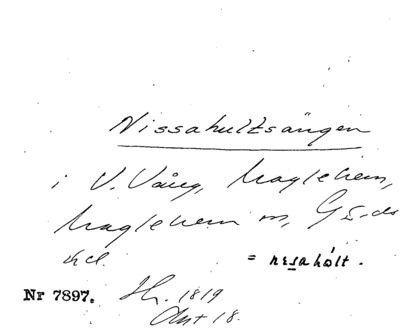 Nissahultsängen
i V. Vång, Maglehem,
Maglehem sn, Gärds
hd.
= nɛsahólt.
Nr 7897. Sk. 1819
Akt 18.